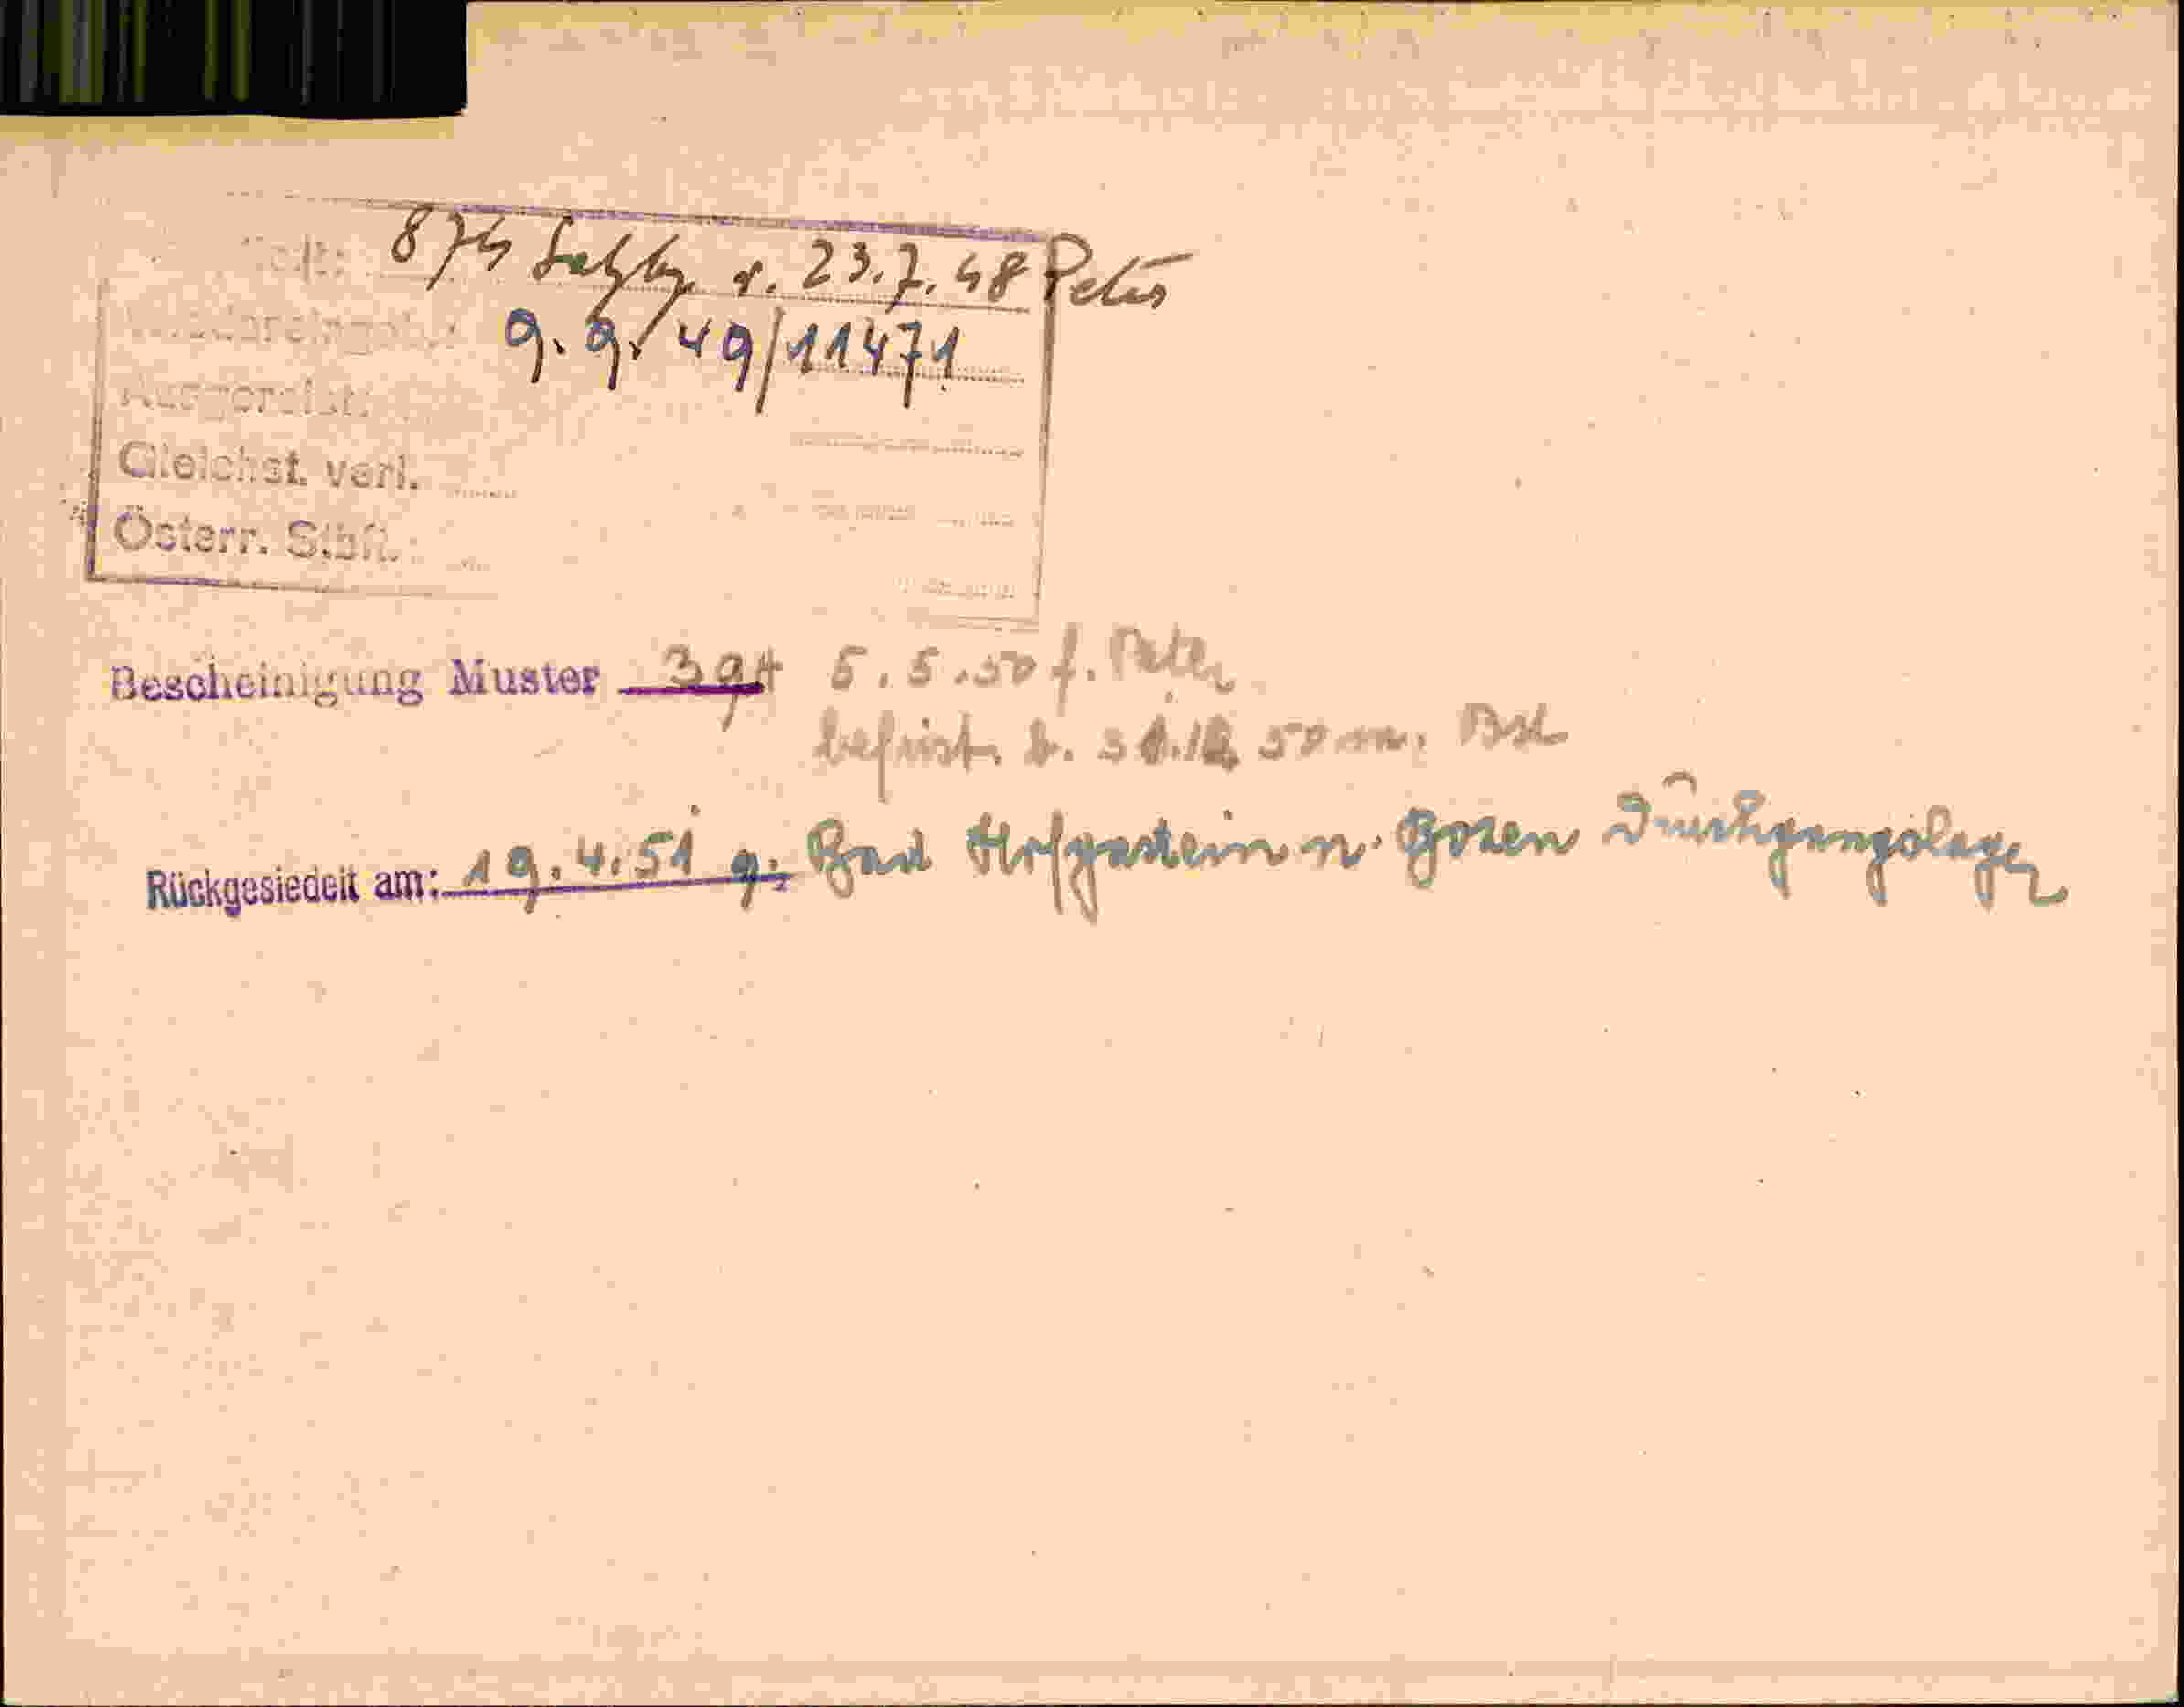 874 Salzbg. v. 23.7.48 Peter
9.9.49/11471
Ausgereist:
Gleichst. verl.
Österr. Stbft.:
Bescheinigung Muster 394 5.5.50 f. Peter
befrist. b. 31.12.50 m.
Rückgesiedelt am: 19.4.51 g. Bad Hofgastein n. Bozen Durchgangslager